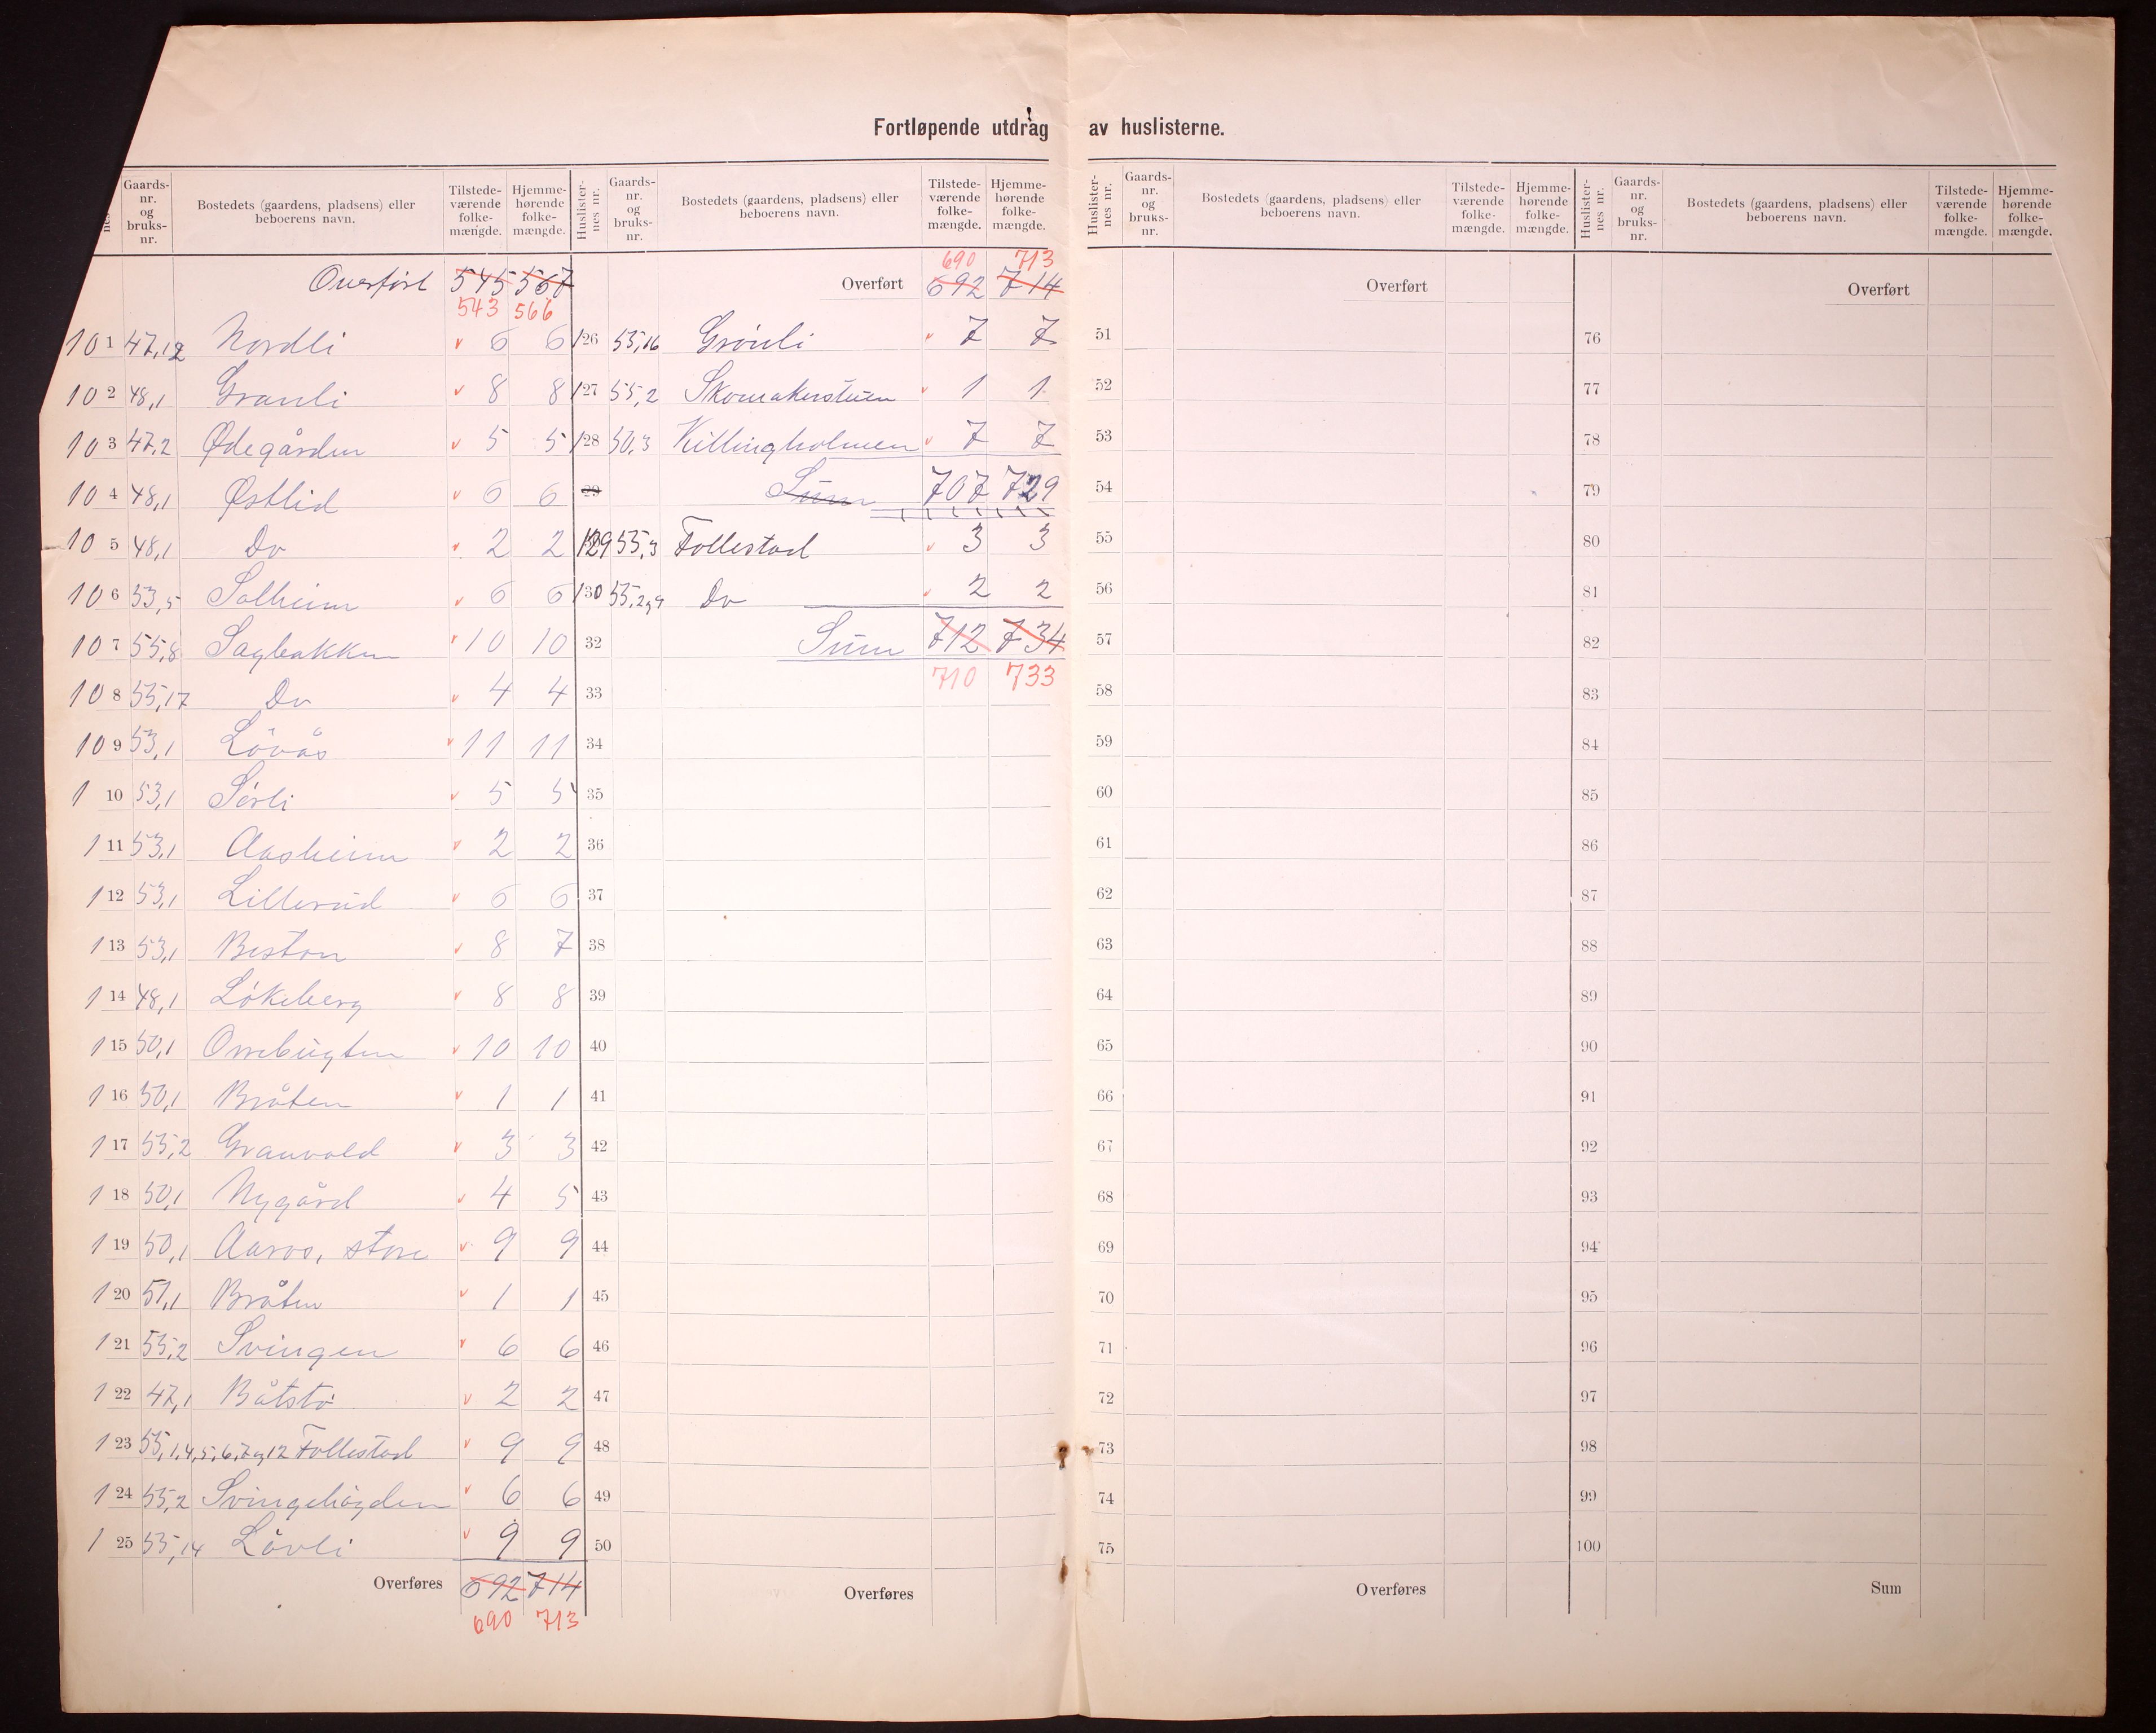 Fortløpende utdrag av huslisterne.
nes Gaards-nr. og bruks-nr. Bostedets (gaardens, pladsens) eller beboerens navn. Tilstede-værende folke-mængde. Hjemme-hørende folke-mængde.
Overført 545 567
543 566
101 47,12 Nordli v 6 6
102 48,1 Granli v 8 8
103 47,2 Ødegården v 5 5
104 48,1 Østlid v 6 6
105 48,1 Do v 2 2
106 53,5 Solheim v 6 6
107 55,8 Sagbakken v 10 10
108 55,17 Do v 4 4
109 53,1 Lövås v 11 11
110 53,1 Sörli v 5 5
111 53,1 Aasheim v 2 2
112 53,1 Lillerud v 6 6
113 53,1 Beston v 8 7
114 48,1 Lökeberg v 8 8
115 50,1 Orrebugten v 10 10
116 50,1 Bråten v 1 1
117 55,2 Granvold v 3 3
118 50,1 Nygård v 4 5
119 50,1 Aaros, store v 9 9
120 51,1 Bråten v 1 1
121 55,2 Svingen v 6 6
122 47,1 Båtstö v 2 2
123 55,1,4,5,6,7og12 Follestad v 9 9
124 55,2 Svingehögden v 6 6
125 55,14 Lövli v 9 9
Overføres 692 714
690 713
Huslister-nes nr. Gaards-nr. og bruks-nr. Bostedets (gaardens, pladsens) eller beboerens navn. Tilstede-værende folke-mængde. Hjemme-hørende folke-mængde.
690 713
Overført 692 714
126 55,16 Grönli v 7 7
127 55,2 Skomakerstuen v 1 1
128 50,3 Killingholmen v 7 7
29 Sum 707 729
129 55,3 Follestad v 3 3
130 55,2og9 Do v 2 2
32 Sum 712 734
33 710 733
34
35
36
37
38
39
40
41
42
43
44
45
46
47
48
49
50
Overføres
Huslister-nes nr. Gaards-nr. og bruks-nr. Bostedets (gaardens, pladsens) eller beboerens navn. Tilstede-værende folke-mængde. Hjemme-hørende folke-mængde.
Overført
51
52
53
54
55
56
57
58
59
60
61
62
63
64
65
66
67
68
69
70
71
72
73
74
75
Overføres
Huslister-nes nr. Gaards-nr. og bruks-nr. Bostedets (gaardens, pladsens) eller beboerens navn. Tilstede-værende folke-mængde. Hjemme-hørende folke-mængde.
Overført
76
77
78
79
80
81
82
83
84
85
86
87
88
89
90
91
92
93
94
95
96
97
98
99
100
Sum